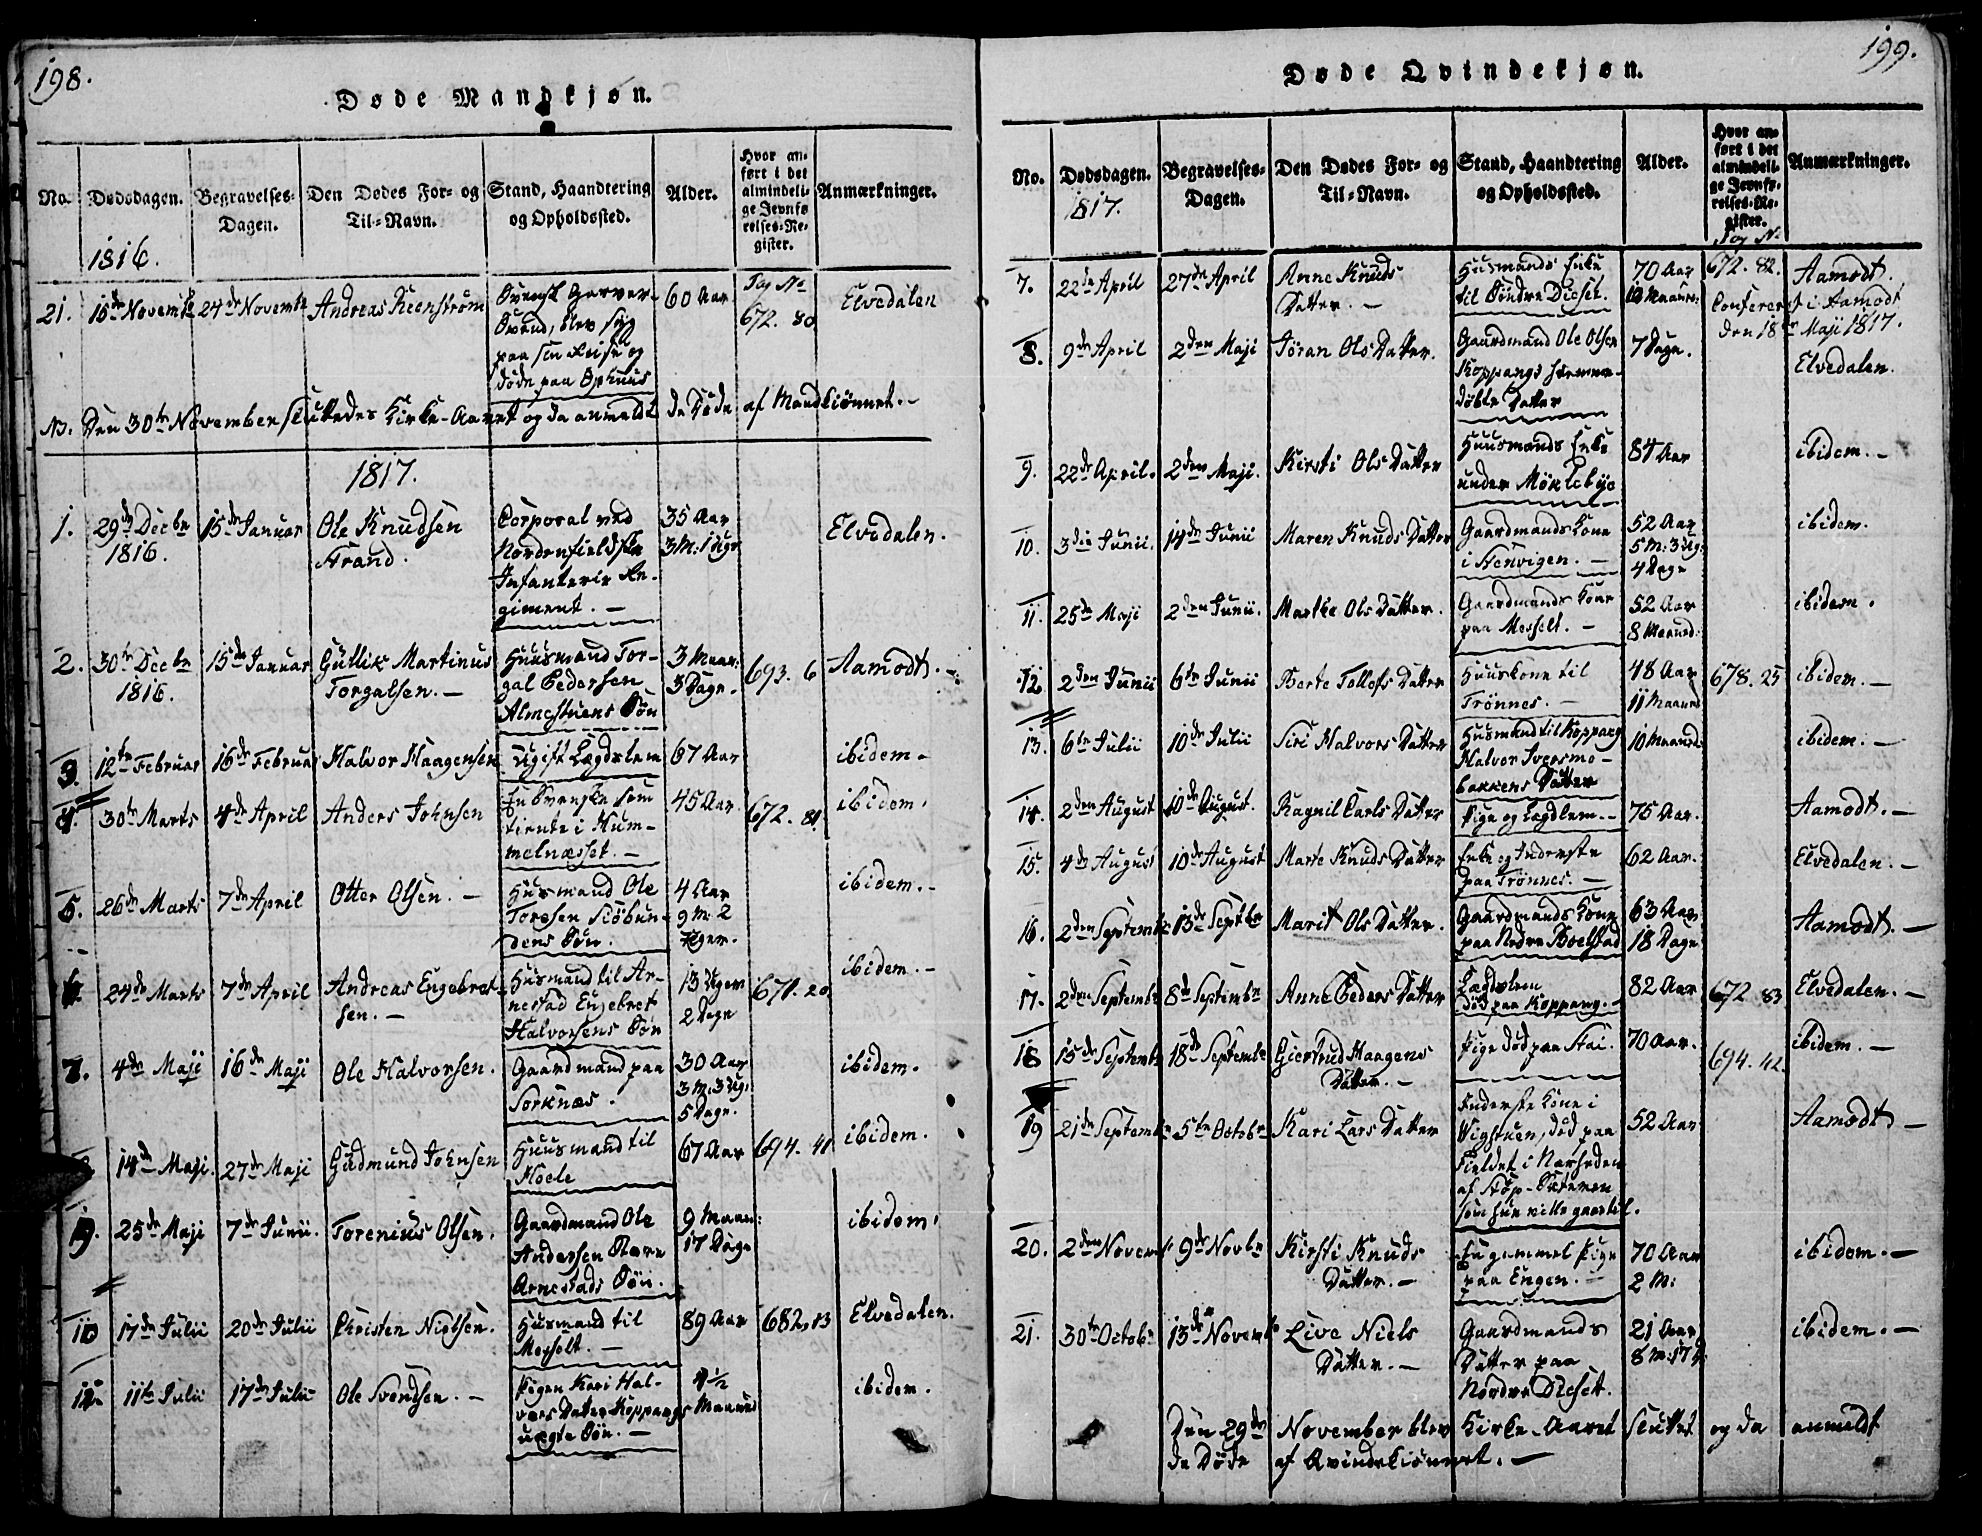 198.
Døde Mandkjøn.
No. Dødsdagen. Begravelses-Dagen. Den Dødes For- og Til-Navn. Stand, Haandtering og Opholdssted. Alder. Hvor anført i det almindelige Jevnførelses-Register. Anmærkninger.
1816.
21. 15de Novembr 24de Novembr Andreas Keenström Svensk Garver- 60 Aar Pag No Elvedalen
Svend, blev syg 672. 80
paa sin Reise og
døde paa Ophuus
NB. Den 30te November sluttedes Kirke-Aaret og da anmeldt de Døde af Mandkiønnet. –
1817.
1. 29de Decbr 15de Januar Ole Knudsen Corporal ved 35 Aar Elvedalen.
1816. Strand. Nordenfieldske 3 M: 1 Uge
Infanterie Re-
giment. –
2. 30te Decbr 15de Januar Gullik Martinus Huusmand Tor- 3 Maan: 693. 6 Aamodt. –
1816. Torgalsen. – gal Pedersen 3 Dage.
Almestuens Søn
3. 12te Februar 16de Februar Halvor Haagensen Ugift Lægdslem 67 Aar ibidem –
4. 30te Marts 4de April Anders Johnsen En Svenske som 45 Aar. 672. 81. ibidem.
tiente i Hum-
melnæsset. –
5. 26de Marts 7de April Otter Olsen. – Husmand Ole 4 Aar ibidem. –
Toresen Siøbun- 9 M: 2
dens Søn. Uger.
6. 24de Marts 7de April Andreas Engebret- Husmand til Ar- 13 Uger 671. 20 ibidem. –
sen. – nestad Engebret 2 Dage
Halvorsens Søn
7. 4de Maji 16de Maji Ole Halvorsen. Gaardmand paa 30 Aar ibidem.
Sorknæs. 3 M: 3 Ug:
5 Dage.
14de Maji. 27de Maji Gudmund Johnsen Huusmand til 67 Aar 694. 41 ibidem.
Hoele
9. 25de Maji 7de Junii. Torenius Olsen. Gaardmand Ole 9 Maan: ibidem.
Andersen Store 17 Dage
Arnestads Søn.
10 17de Julii 20de Julii Christen Nielsen. Husmand til 89 Aar 682. 13 Elvedalen.
Messelt. –
11te Julii 17de Julii Ole Svendsen. – Pigen Kari Hal- 4 1/2 ibidem.
vors Datter Koppangs Maaned
uægte Søn. –
199.
Døde Qvindekjøn.
No. Dødsdagen. Begravelses-Dagen. Den Dødes For- og Til-Navn. Stand, Haandtering og Opholdssted. Alder. Hvor anført i det almindelige Jevnførelses-Register. Anmærkninger.
1817. Pag No
7. 22de April 27de April Anne Knuds Husmands Enke 70 Aar 672. 82. Aamodt.
Datter. – til Søndre Dieset. 10 Maaned: Confereret i Aamodt
den 18de Maji 1817.
8. 9de April 2den Maji Jöran Ols Datter. Gaardmand Ole Olsen 7 Dage. Elvedalen.
Koppangs hiemme-
døbte Datter
9. 22de April. 2den Maji. Kirsti Ols Datter Huusmands Enke 84 Aar ibidem. –
under Möklebye
10. 3die Junii. 14de Junii Maren Knuds Datter Gaardmands Kone 52 Aar ibidem.
i Steenvigen. – 5 M: 3 Ug:
4 Dage
11. 25de Maji 2den Junii. Marthe Ols Datter. Gaardmands Kone 52 Aar ibidem.
paa Messelt. – 8 Maaned:
12 2den Junii 6te Junii Berte Tollefs Datter Huuskone til 48 Aar 678. 25 ibidem. –
Trønnes. – 11 Maaned
13. 6te Julii 10de Julii Siri Halvors Datter Husmand til Koppang 10 Maaned. ibidem. –
Halvor Iversmo-
bakkens Datter
14. 2den August 10de August. Ragnil Carls Datter Pige og Lægdlem. – 75 Aar. Aamodt. –
15. 4de August 10de August Marte Knuds Datter Enke og Inderste 62 Aar. Elvedalen. –
paa Trønnes. –
16. 2den Septembr 13de Septbr Marit Ols Datter. Gaardmands Kone 63 Aar Aamodt. –
paa Nedre Boelstad 18 Dage
17. 2den Septembr 8de Septembr Anne Peders Datter Lægdslem 82 Aar 672 83 Elvedalen. –
død paa Koppang. –
18 15de Septembr 18de Septembr Giertrud Haagens Pige død paa Stai. 70 Aar. 694. 42. ibidem. –
Datter. –
19 21de Septembr 5te Octobr Kari Lars Datter Inderste Kone i 52 Aar Aamodt –
Vigstuen, død paa
Fieldet i Nærheden
af Støp-Sæteren
som hun vilde gaae til.
20. 2den Novembr 9de Novbr Kirsti Knuds En gammel Pige 70 Aar ibidem. –
Datter. – paa Engen. – 2 M:
21. 30te Octobr 15de Novembr Live Niels Gaardmands 21 Aar ibidem. –
Datter. – Datter paa 8 M: 17 D:
Nordre Dieset.
Den 29de November blev Kirke-Aaret sluttet og da anmeldt
de Døde af Qvindekiönnet. –